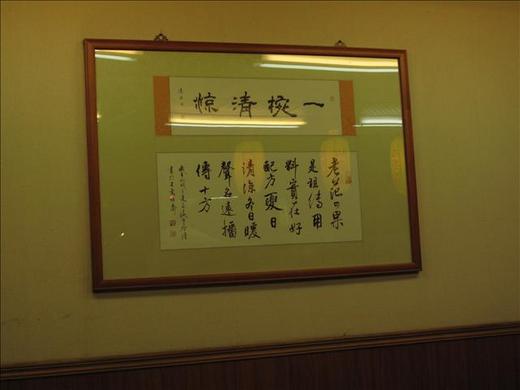 一椀清涼
老范四果
是祖傳用
料實在好
配方夏日
清涼冬日暖
聲名遠播
傳十方